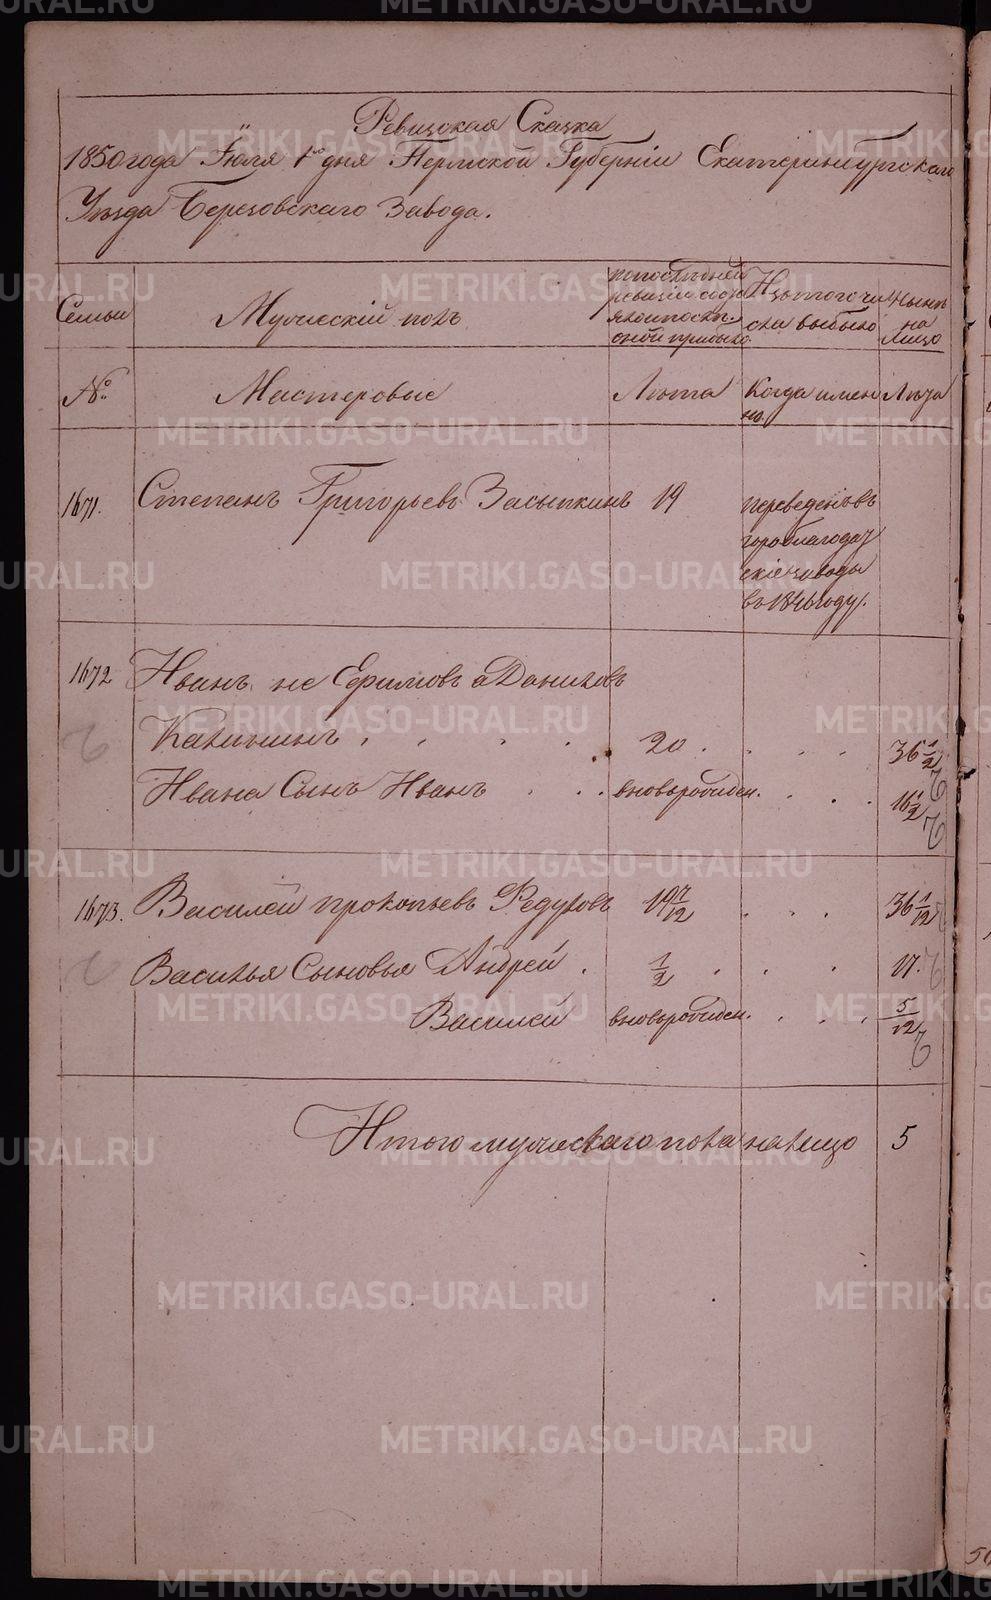 Ревизская Сказка
1850 года Іюля 1го дня Пермской Губерніи Екатеринбургскаго
Уѣзда Березовскаго Завода.
Семьи
Мужескій полъ
по последней
ревизіи состо
яло и посл.
оной прибыло
Изъ того чи
сла выбыло
Нынѣ
на
Лицо
№
Мастеровые
Лѣта
Когда имен
но
Лѣта
1671.
Степанъ Григорьевъ Засыпкинъ
19
переведенъ въ
гороблагодат
скіе заводы
въ 1846 году.
1672
Иванъ не Ефимовъ а Даниловъ
Калининъ
20
36 1/2
Ивана Сынъ Иванъ
вновьрожден.
16 1/2
1673.
Василей прокопьевъ Федуловъ
19 7/12
36 1/12
Василья Сыновья Андрей
1/2
17.
Василей
вновьрожден.
5/12
Итого мужескаго пола налицо
5
METRIKI.GASO-URAL.RU